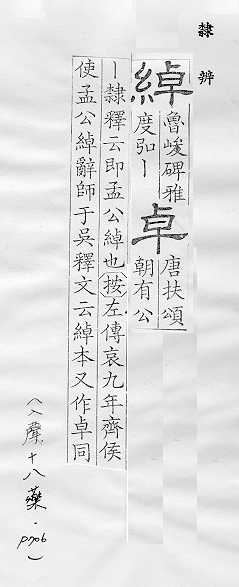 隸辨
綽魯峻碑雅
度弘丨
卓唐扶頌
朝有公
丨隸釋云即孟公綽也按左傳哀九年齊侯
使孟公綽辭師于吳釋文云綽本又作卓同
(入聲十八藥.p706)